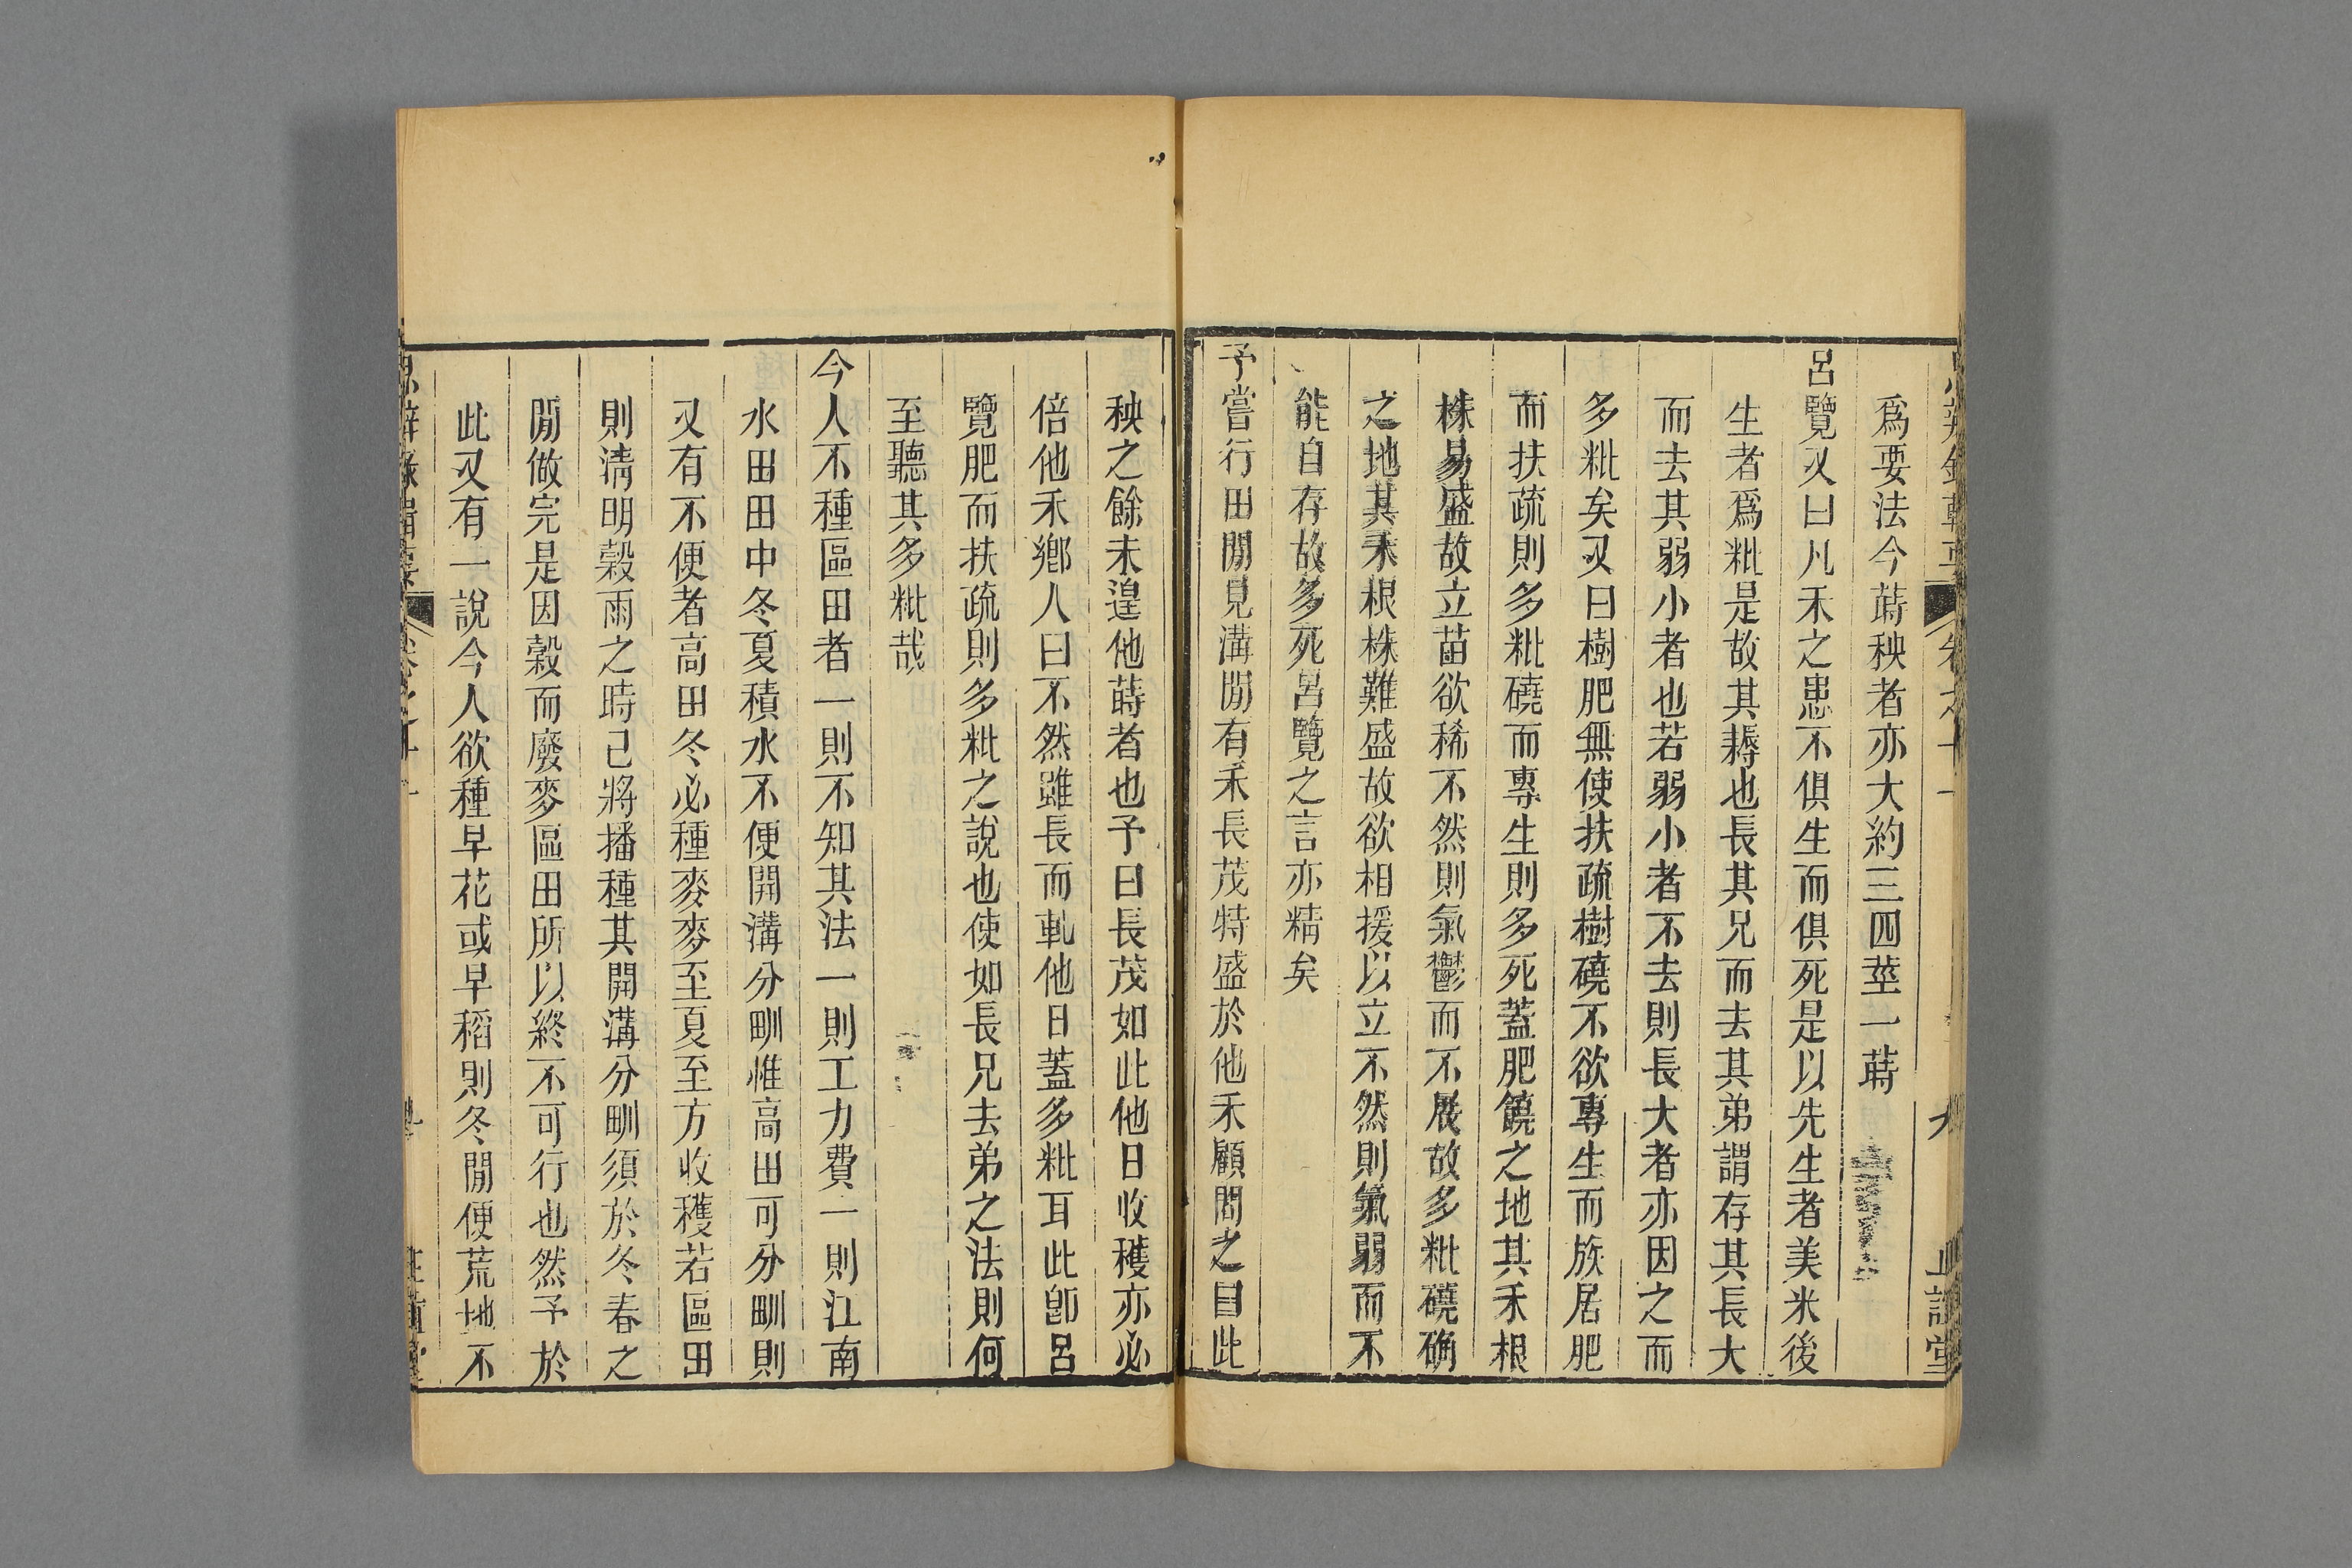 爲要法今蒔秧者亦大約三四莖一蒔
呂覽又曰凡禾之患不俱生而俱死是以先生者美米後
生者爲粃是故其耨也長其兄而去其弟謂存其長大
而去其弱小者也若弱小者不去則長大者亦因之而
多粃矣又曰樹肥無使扶疏樹磽不欲專生而族居肥
而扶疏則多粃磽而專生則多死蓋肥饒之地其禾根
株易盛故立苗欲稀不然則氣鬱而不展故多粃磽确
之地其禾根株難盛故欲相援以立不然則氣弱而不
能自存故多死呂覽之言亦精矣
予嘗行田閒見溝閒有禾長茂特盛於他禾顧問之曰此
秧之餘未遑他蒔者也予曰長茂如此他日收穫亦必
倍他禾鄉人曰不然雖長而軋他日蓋多粃耳此卽呂
覽肥而扶疏則多粃之說也使如長兄去弟之法則何
至聽其多粃哉
今人不種區田者一則不知其法一則工力費一則江南
水田田中冬夏積水不便開溝分甽惟高田可分甽則
又有不便者高田冬必種麥麥至夏至方收穫若區田
則淸明穀雨之時已將播種其開溝分甽須於冬春之
閒做完是因穀而廢麥區田所以終不可行也然予於
此又有一說今人欲種早花或早稻則冬閒便荒地不